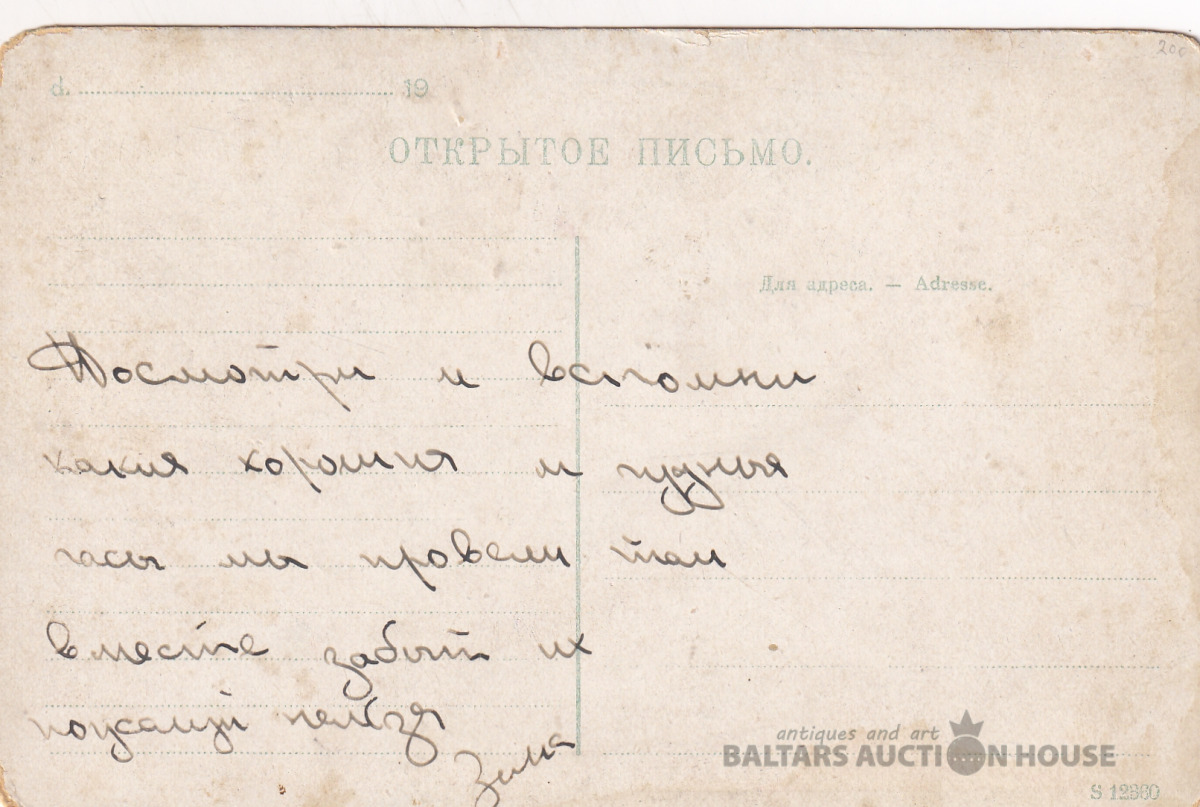 200
d. 19
ОТКРЫТОЕ ПИСЬМО.
Для адреса. — Adresse.
Посмотри и вспомни
какия хорошия и чудныя
часы мы провели там
вместе забыт их
пожалуй нельзя
Зима
antiques and art
BALTARS AUCTION HOUSE
S 12360